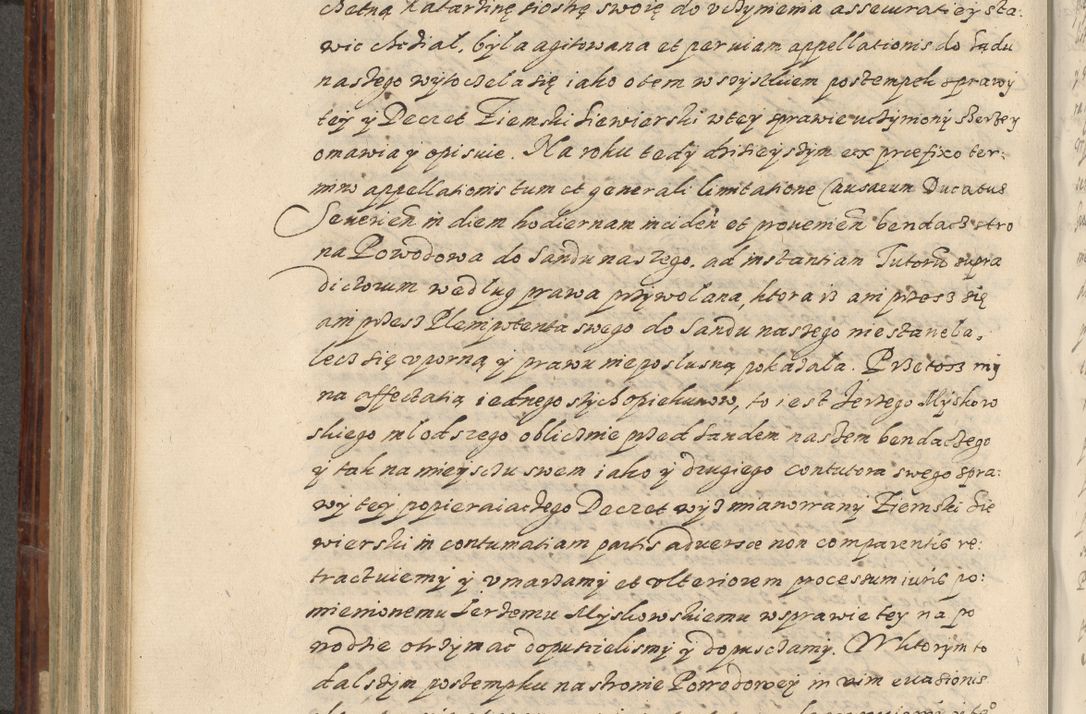 chetną Katarzinę siostrę swoię do vczymiema assecuratiey sta:
wic chcial, była agitowana et per viam appellationis do Sądu
naszego wytoczela się iako o tem wszystkiem postempek sprawy
tey y Decret Ziemski Siewierski w tey sprawie uczyniony szerzey
omawia y opisuie. Na roku tedy dzisieyszym ex præfixo ter:
mino appellationis tum et generali limitatione Causarum Ducatus
Severien in diem hodiernam inciden et provenien bendacz stro
na Powodowa do Sandu naszego, ad instantiam Tutorũ supra
dictorum według prawa przywolana, ktora iz ani przez się
ani przez Plenipotenta swego do Sandu naszego nie stanela,
lecz się vporną y prawu nieposluszną pokazala. Przetosz my
na affectatią iednego s tych opiekunow, to iest Jerzego Myskow
skiego mlodszego oblicznie przed Sandem naszem bendaczego
y tak na mieysczu swem iako y drugiego contutora swego spra:
wy tey popieraiaczego Decret wyz mianowany Ziemski Sie
wierski in contumatiam partis adversæ non comparentis re:
tractuiemy y vmarzamy et vlteriorem processum iuris po:
mienionemu Jerzemu Myskowskiemu w sprawie tey na po
wodzie otrzymac dopuscielismy y dopusczamy. W ktorym to
dalszym postempku na stronie Powodowey in vim evasionis